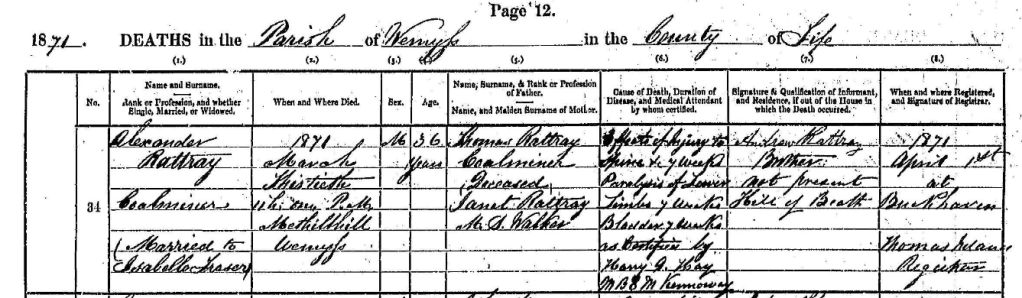 Page 12.
1871. DEATHS in the Parish of Wemyss in the County of Fife
(1.) (2.) (3.) (4.) (5.) (6.) (7.) (8.)
No.
Name and Surname.
Rank or Profession, and whether
Single, Married, or Widowed.
When and Where Died.
Sex.
Age.
Name, Surname, & Rank or Profession
of Father.
Name, and Maiden Surname of Mother.
Cause of Death, Duration of
Disease, and Medical Attendant
by whom certified.
Signature & Qualification of Informant,
and Residence, if out of the House in
which the Death occurred.
When and where Registered,
and Signature of Registrar.
34
Alexander
Rattray
Coalminer
(Married to
Isabella Fraser)
1871
March
Thirtieth
11h. P.M.
Methilhill
Wemyss
M
36
years
Thomas Rattray
Coalminer
(Deceased)
Janet Rattray
M.S. Walker
Effects of Injury to
Spine 7 weeks
Paralysis of Lower
Limbs 7 weeks
Bladder 7 weeks
as Certified by
Harry Hay
M B & M Kennoway
Andrew Rattray
Brother
not present
Hill of Beath
1871
April 1st
at
Buckhaven
Thomas
Registrar